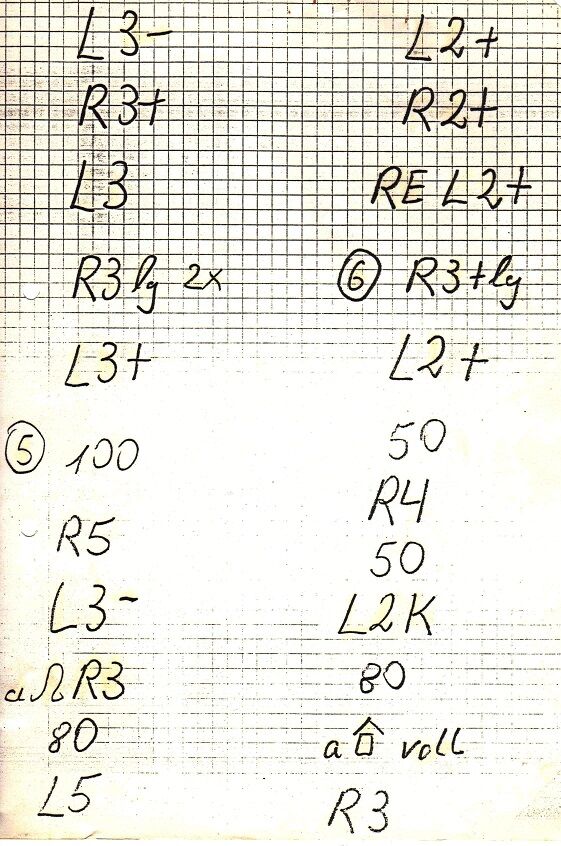 L3-
R3+
L3
R3 lg 2x
L3+
5 100
R5
L3-
a R3
80
L5
L2+
R2+
RE L2+
6 R3+lg
L2+
50
R4
50
L2K
80
a voll
R3